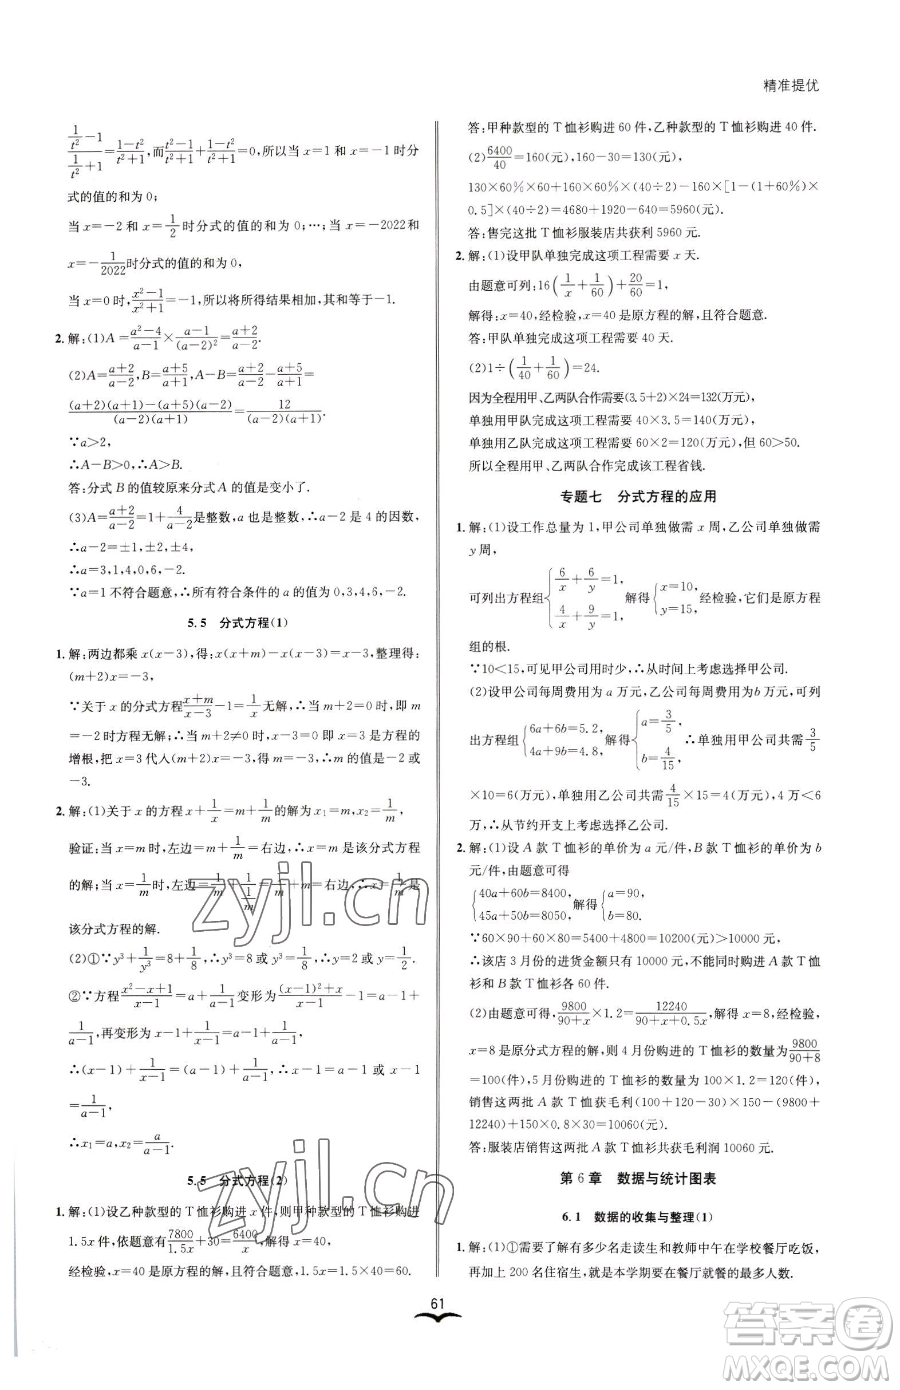 精准提优
(1/t²−1)/(1/t²+1)=(1−t²)/(t²+1),而(t²−1)/(t²+1)+(1−t²)/(t²+1)=0,所以当 x=1 和 x=−1 时分
式的值的和为 0;
当 x=−2 和 x=1/2时分式的值的和为 0;…;当 x=−2022和
x=−1/2022时分式的值的和为 0;
当 x=0 时,(x²−1)/(x²+1)=−1,所以将所得结果相加,其和等于−1.
2. 解:(1)A=(a²−4)/(a−1)×(a−1)/(a−2)²=(a+2)/(a−2).
(2)A=(a+2)/(a−2),B=(a+5)/(a+1),A−B=(a+2)/(a−2)−(a+5)/(a+1)=
((a+2)(a+1)−(a+5)(a−2))/((a−2)(a+1))=12/((a−2)(a+1)).
∵a>2,
∴A−B>0,∴A>B.
答:分式 B 的值较原来分式 A 的值是变小了.
(3)A=(a+2)/(a−2)=1+4/(a−2)是整数,a 也是整数,∴a−2 是 4 的因数,
∴a−2=±1,±2,±4.
∴a=3,1,4,0,6,−2.
∵a=1 不符合题意,∴所有符合条件的 a 的值为 0,3,4,6,−2.
5.5 分式方程(1)
1. 解:两边都乘 x(x−3),得:x(x+m)−x(x−3)=x−3,整理得:
(m+2)x=−3,
∵关于 x 的分式方程(x+m)/(x−3)−1=1/x无解,∴当 m+2=0,即 m
=−2 时方程无解;∴当 m+2≠0 时方程无解,即 x=3 是方程的
增根,把 x=3 代入(m+2)x=−3,得 m=−3,∴m 的值是−2 或
−3.
2. 解:(1)关于 x 的方程 x+1/x=m+1/m的解为 x₁=m,x₂=1/m,
验证:当 x=m 时,左边=m+1/m=右边,∴x=m 是该分式方程
的解;当 x=1/m时,左边=1/m+1/(1/m)=1/m+m=右边,∴x=1/m是
该分式方程的解.
(2)①∵y³+1/y³=8+1/8,∴y³=8 或 y³=1/8,∴y=2 或 y=1/2.
②∵方程(x²−x+1)/(x−1)=a+1/(a−1)变形为((x−1)²+x)/(x−1)−1=a−1+
1/(a−1),再变形为 x−1+1/(x−1)=a−1+1/(a−1),
∴(x−1)+1/(x−1)=(a−1)+1/(a−1),∴x−1=a−1 或 x−1=
1/(a−1),
∴x₁=a,x₂=a/(a−1).
5.5 分式方程(2)
1. 解:(1)设乙种款型的 T 恤衫购进 x 件,则甲种款型的 T 恤衫购进
1.5x 件,依题意有7800/1.5x+30=6400/x,解得 x=40,
经检验,x=40 是原方程的解,且符合题意,1.5x=1.5×40=60.
答:甲种款型的 T 恤衫购进 60 件,乙种款型的 T 恤衫购进 40 件.
(2)6400/40=160(元),160−30=130(元),
130×60%×60+160×60%×(40÷2)−160×[1−(1+60%)×
0.5]×(40÷2)=4680+1920−640=5960(元).
答:售完这批 T 恤衫服装店共获利 5960 元.
2. 解:(1)设甲队单独完成这项工程需要 x 天.
由题意可列:16(1/x+1/60)+20/60=1,
解得:x=40,经检验,x=40 是原方程的解,且符合题意.
答:甲队单独完成这项工程需要 40 天.
(2)1÷(1/40+1/60)=24.
因为全程用甲、乙两队合作需要(3.5+2)×24=132(万元),
单独用甲队完成这项工程需要 40×3.5=140(万元),
单独用乙队完成这项工程需要 60×2=120(万元),但 60>50.
所以全程用甲、乙两队合作完成该工程省钱.
专题七 分式方程的应用
1. 解:(1)设工作总量为 1,甲公司单独做需 x 周,乙公司单独做需
y 周,
可列出方程组{6/x+6/y=1, 4/x+9/y=1, 解得{x=10, y=15, 经检验,它们是原方程
组的根.
∵10<15,可见甲公司用时少,∴从时间上考虑选择甲公司.
(2)设甲公司每周费用为 a 万元,乙公司每周费用为 b 万元,可列
出方程组{6a+6b=5.2, 4a+9b=4, 解得{a=3/5, b=4/15, ∴单独用甲公司共需3/5
×10=6(万元),单独用乙公司共需4/15×15=4(万元),4<6
(万元),∴从节约开支上考虑选择乙公司.
2. 解:(1)设 A 款 T 恤衫的单价为 a 元/件,B 款 T 恤衫的单价为 b
元/件,由题意可得
{40a+60b=8400, 45a+50b=8050, 解得{a=90, b=80,
∵60×90+60×80=5400+4800=10200>10000,
∴该店 3 月份的进货金额只有 10000 元,不能同时购进 A 款 T 恤
衫和 B 款 T 恤衫各 60 件.
(2)由题意可得,9800/(90+x)×1.2=12240/(90+x+0.5x),解得 x=8,经检验,
x=8 是原分式方程的解,则 4 月份购进的 T 恤衫的数量为9800/(90+8)
=100(件),5 月份购进的 T 恤衫的数量为 100×1.2=120(件),
销售这两批 A 款 T 恤衫获毛利(100+120−30)×150−(9800+
12240)+150×0.8×30=10060(元).
答:服装店销售这两批 A 款 T 恤衫共获毛利润 10060 元.
第 6 章 数据与统计图表
6.1 数据的收集与整理(1)
1. 解:(1)①需要了解有多少名走读生和教师中午在学校餐厅吃饭,
再加上 200 名住宿生,就是本学期要在餐厅就餐的最多人数.
61
zyjl.cn
zyjl.cn
答案圈
MXQE.COM